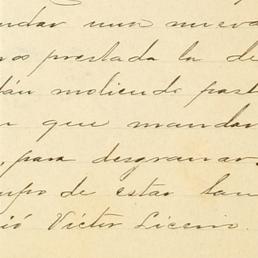 ndar una nueva
nos prestada la de
tán moliendo past
n que mandar
, para desgranar
mpo de estar tan
ió Victor Liceni.